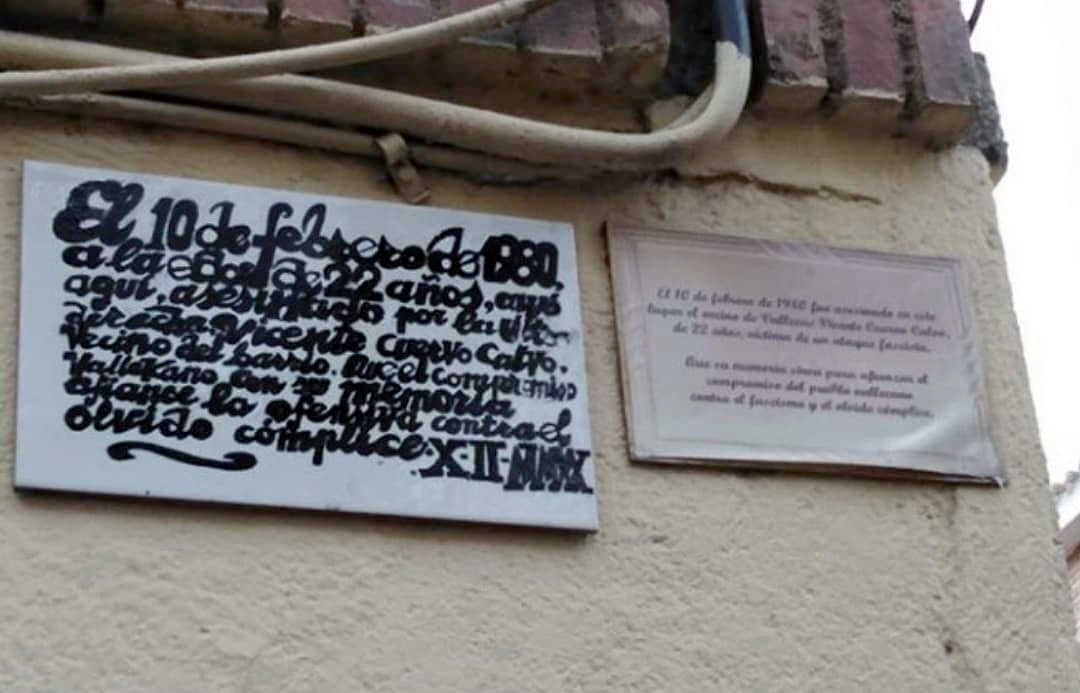 El 10 de febrero de 1980,
a la edad de 22 años, cayó
aquí, asesinado por la
derecha, Vicente Cuervo Calvo,
vecino del barrio. Que el compromiso
vallekano con su memoria
afiance la ofensiva contra el
olvido cómplice. X·II·MMXX
El 10 de febrero de 1980 fue asesinado en este
lugar el vecino de Vallecas Vicente Cuervo Calvo,
de 22 años, víctima de un ataque fascista.
Que su memoria sirva para afianzar el
compromiso del pueblo vallecano
contra el fascismo y el olvido cómplice.